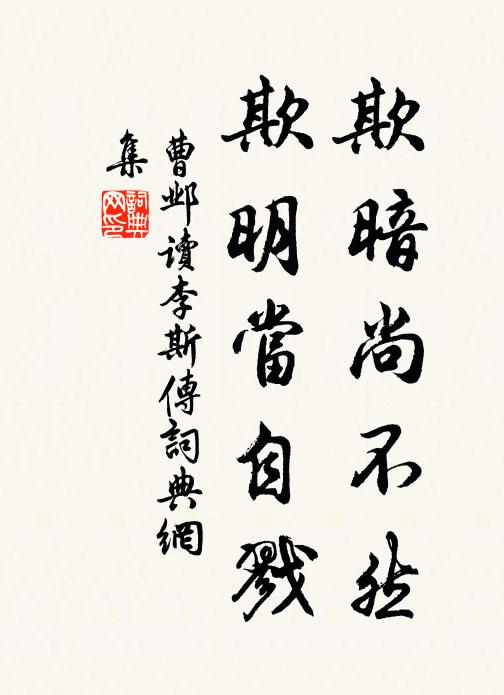 欺暗尚不然
欺明當自戮
曹邺讀李斯傳詞典網
集
詞典
网印